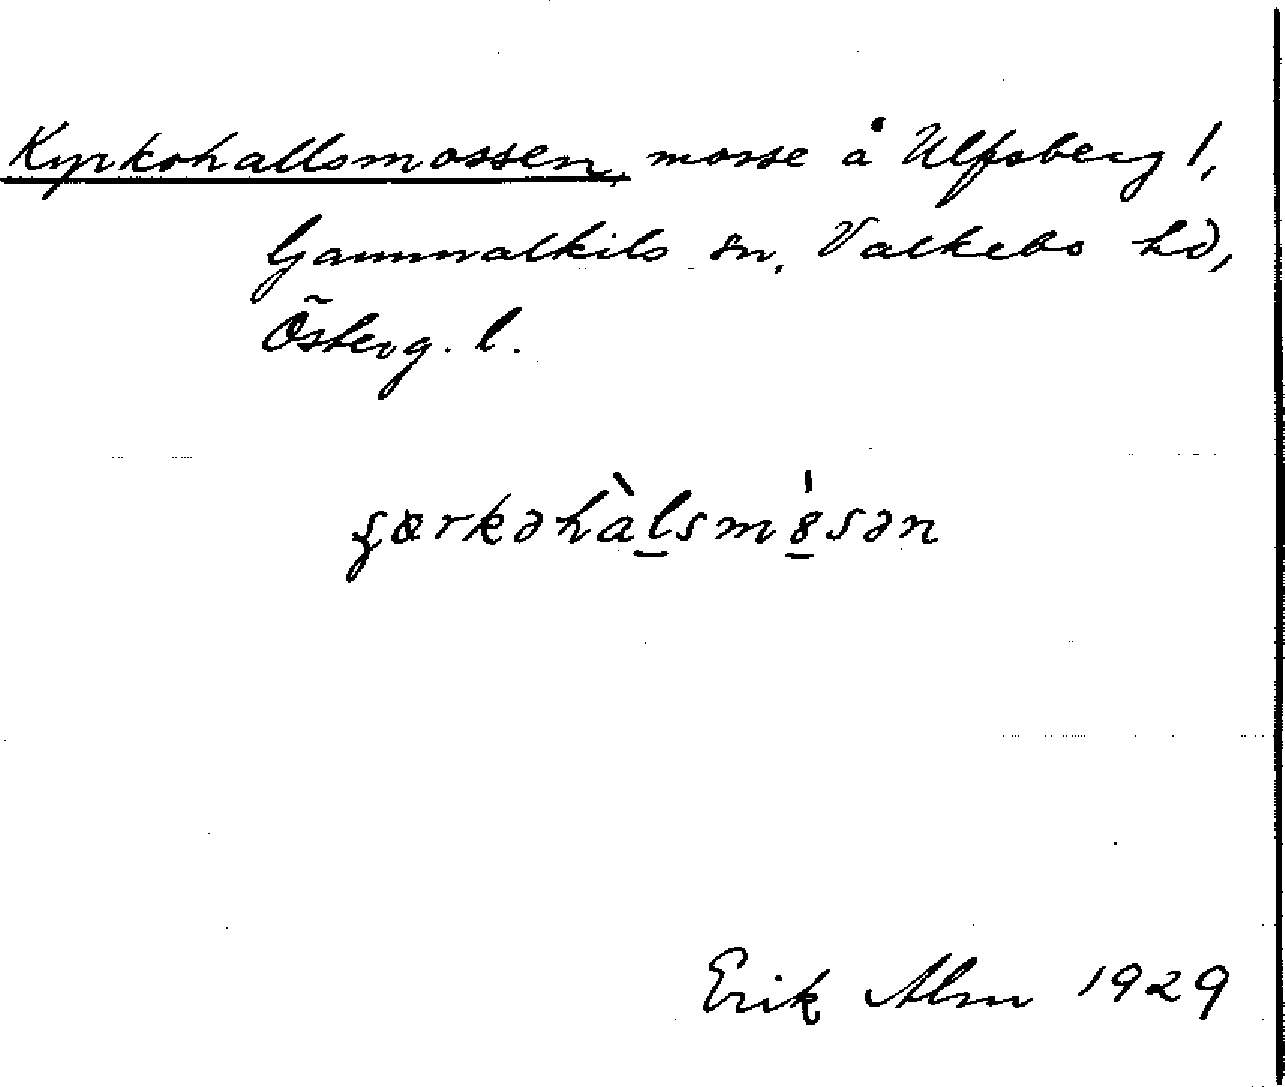 Kyrkohallsmossen, mosse å Ulfsberg 1,
Gammalkils sn, Valkebo hd,
Österg. l.
ʂærkəhàl̠smȣ̠́sən
Erik Alm 1929